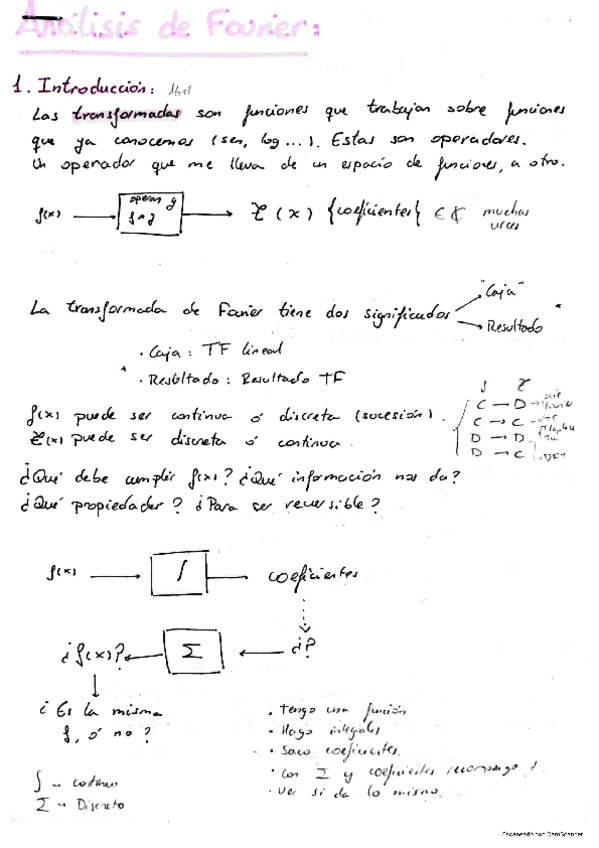 Análisis de Fourier:
1. Introducción: Abril
Las transformadas son funciones que trabajan sobre funciones
que ya conocemos (sen, log ...). Estas son operadores.
Un operador que me lleva de un espacio de funciones, a otro.
f(x) → → (x) {coeficientes} ∈ ₵ muchas
veces
La transformada de Fourier tiene dos significados
"Caja"
Resultado
· Caja: TF lineal
· Resultado: Resultado TF
f(x) puede ser continua ó discreta (sucesión).
(x) puede ser discreta ó continua.
C → D → serie Fourier
C → C → TF
D → D →
D → C
¿Qué debe cumplir f(x)? ¿Qué información nos da?
¿Qué propiedades? ¿Para ser reversible?
f(x) → ∫ → coeficientes
¿f(x)? ← Σ ← ¿?
¿Es la misma
f, ó no?
∫ → continuo
Σ → Discreto
· Tengo una función
· Hago integales
· Saco coeficientes.
· Con Σ y coeficientes recompongo f.
· Ver si da lo mismo.
Escaneado con CamScanner